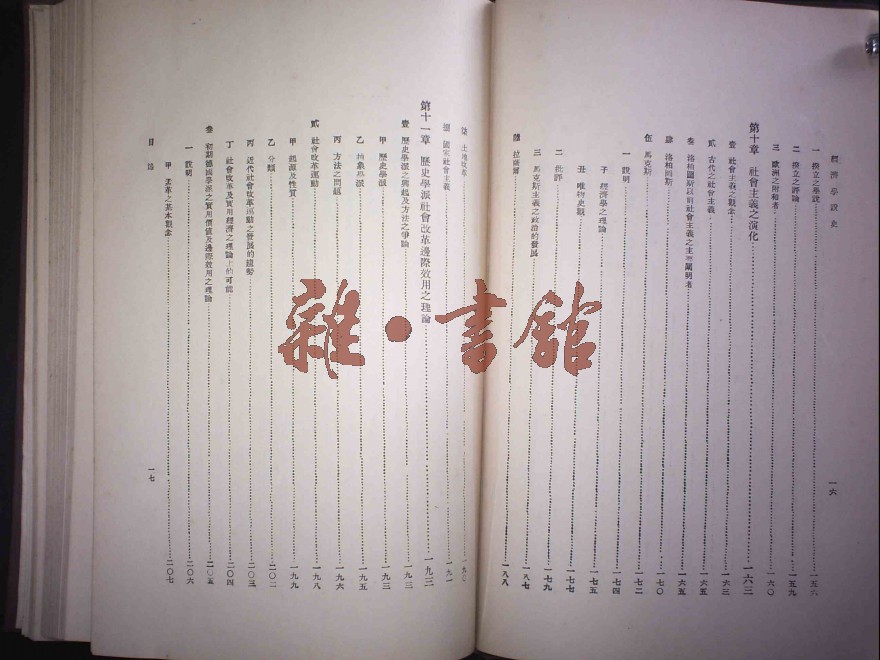 經濟學說史
一 揆立之學說 一五六
二 揆立之評論 一五九
三 歐洲之附和者 一六〇
第十章 社會主義之演化 一六三
壹 社會主義之觀念 一六三
貳 古代之社會主義 一六五
叁 洛柏圖斯以前社會主義之主要闡明者 一六五
肆 洛柏圖斯 一七〇
伍 馬克斯 一七二
一 說明 一七四
子 經濟學之理論 一七五
丑 唯物史觀 一七七
二 批評 一七九
三 馬克斯主義之政治的發展 一八七
陸 拉薩爾 一八八
一六
柒 土地改革 一九〇
捌 國家社會主義 一九一
第十一章 歷史學派社會改革邊際效用之理論 一九三
壹 歷史學派之興起及方法之爭論 一九三
甲 歷史學派 一九三
乙 抽象學派 一九五
丙 方法之問題 一九六
貳 社會改革運動 一九八
甲 起源及性質 一九九
乙 分類 二〇二
丙 近代社會改革運動之發展的趨勢 二〇三
丁 社會改革及實用經濟之理論上的可能 二〇四
叁 初期德國學派之實用價值及邊際效用之理論 二〇五
一 說明 二〇六
甲 孟革之基本觀念 二〇七
目錄
一七
雜·書館